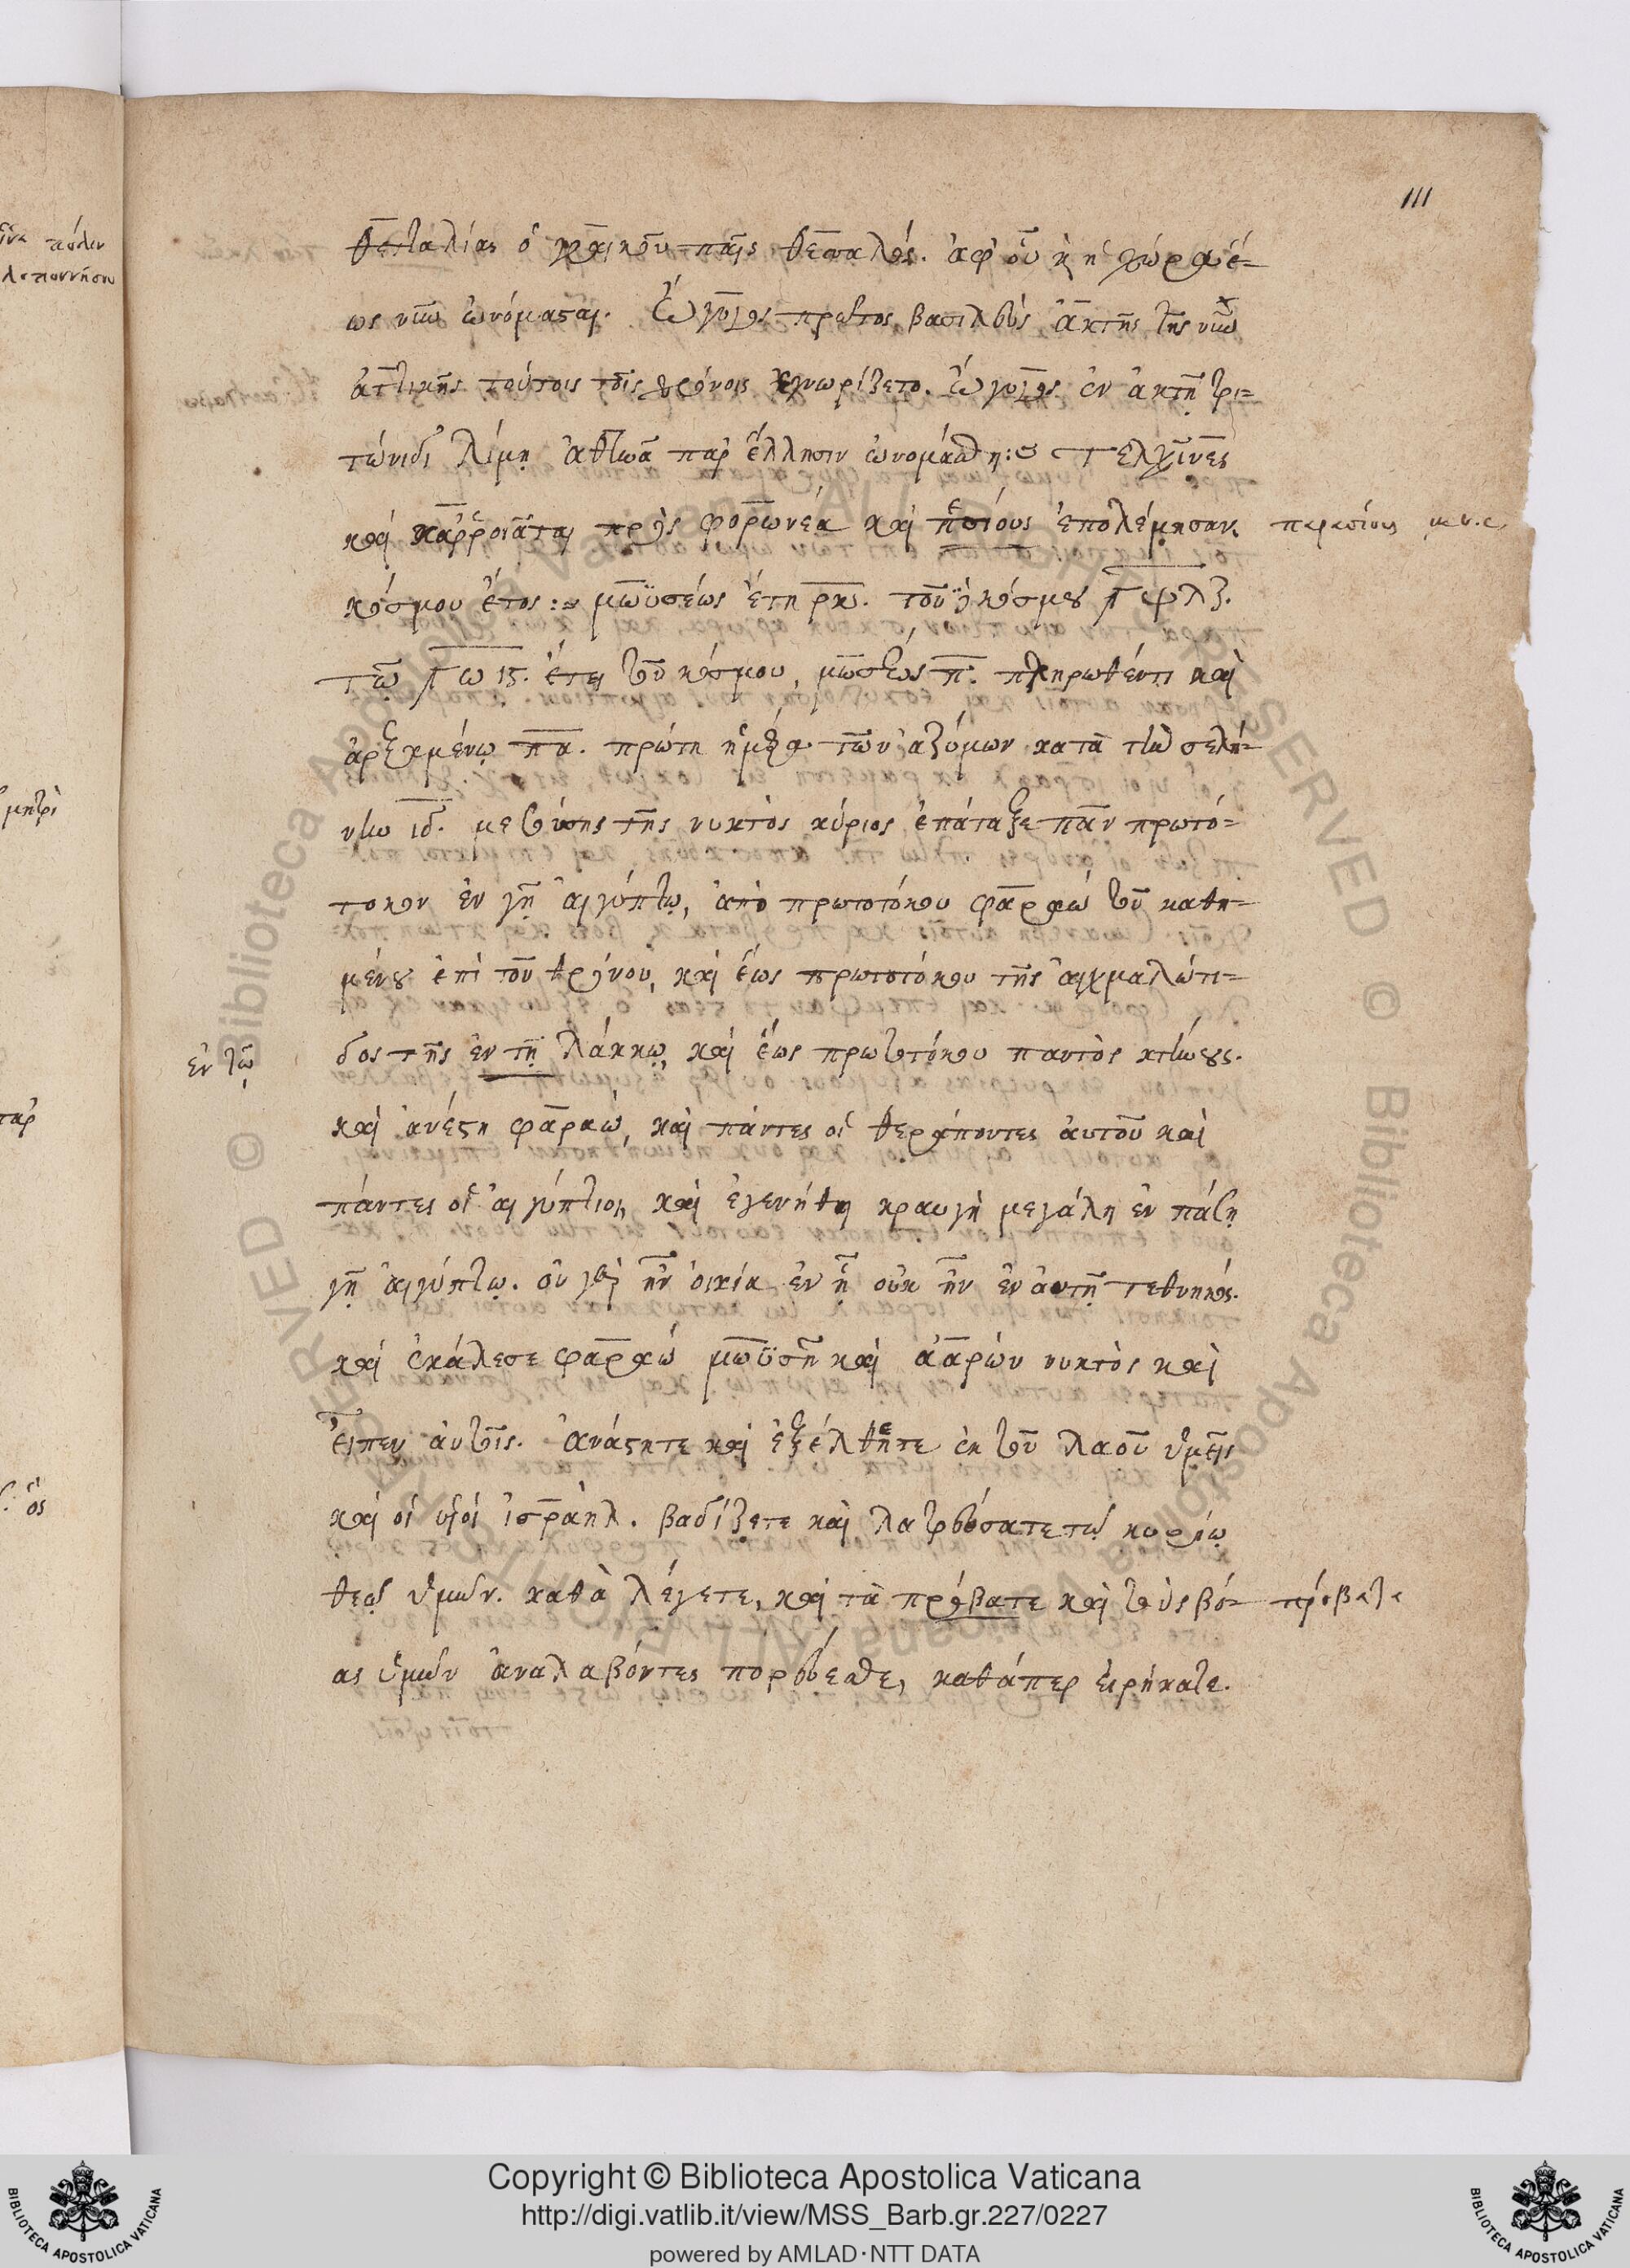 111
θετταλίας ὁ γραικοῦ παῖς θεσσαλός. ἀφ' οὗ κ ἡ χώρα ἕ-
ως νῦν ὠνόμασται. Ὠγυγος πρῶτος βασιλεὺς ἀκτῆς τῆς νῦν
ἀττικῆς τούτοις τοῖς χρόνοις ἐγνωρίζετο. Ὠγυγος ἐν ἀκτῇ τρι-
τώνιδι λίμῃ ἀθηνᾶ παρ' ἕλλησιν ὠνομάσθη: Τελχῖνες
καὶ καρροιᾶται πρὸς φορωνέα καὶ πσίους ἐπολέμησαν.
κόσμου ἔτος: μωϋσέως ἔτη ρκ. τοῦ κόσμου γψλζ.
τῷ γωις. ἔτει τοῦ κόσμου, μωσέως π. πληρωθέντι καὶ
ἀρξαμένῳ πα. πρώτῃ ἡμέρᾳ τῶν ἀζύμων κατὰ τὴν σελή-
νην ιδ. μεσούσης τῆς νυκτὸς κύριος ἐπάταξε πᾶν πρωτό-
τοκον ἐν γῇ αἰγύπτῳ, ἀπὸ πρωτοτόκου φαραὼ τοῦ καθη-
μένου ἐπὶ τοῦ θρόνου, καὶ ἕως πρωτοτόκου τῆς αἰχμαλώτι-
δος τῆς ἐν τῇ λάκκῳ, καὶ ἕως πρωτοτόκου παντὸς κτήνους.
ἐν τῷ
καὶ ἀνέστη φαραὼ, καὶ πάντες οἱ θεράποντες αὐτοῦ καὶ
πάντες οἱ αἰγύπτιοι, καὶ ἐγενήθη κραυγὴ μεγάλη ἐν πάσῃ
γῇ αἰγύπτῳ. οὐ γὰρ ἦν οἰκία ἐν ᾗ οὐκ ἦν ἐν αὐτῇ τεθνηκός.
καὶ ἐκάλεσε φαραὼ μωϋσῆν καὶ ἀαρὼν νυκτὸς καὶ
εἶπεν αὐτοῖς. ἀνάστητε καὶ ἐξέλθετε ἐκ τοῦ λαοῦ ὑμεῖς
καὶ οἱ υἱοὶ ἰσραὴλ. βαδίζετε καὶ λατρεύσατε τῷ κυρίῳ
θεῷ ὑμῶν. καθὰ λέγετε, καὶ τὰ πρόβατε καὶ τοὺς βό-
πρόβατα
ας ὑμῶν ἀναλαβόντες πορεύεσθε, καθάπερ εἰρήκατε.
Copyright © Biblioteca Apostolica Vaticana
http://digi.vatlib.it/view/MSS_Barb.gr.227/0227
powered by AMLAD·NTT DATA